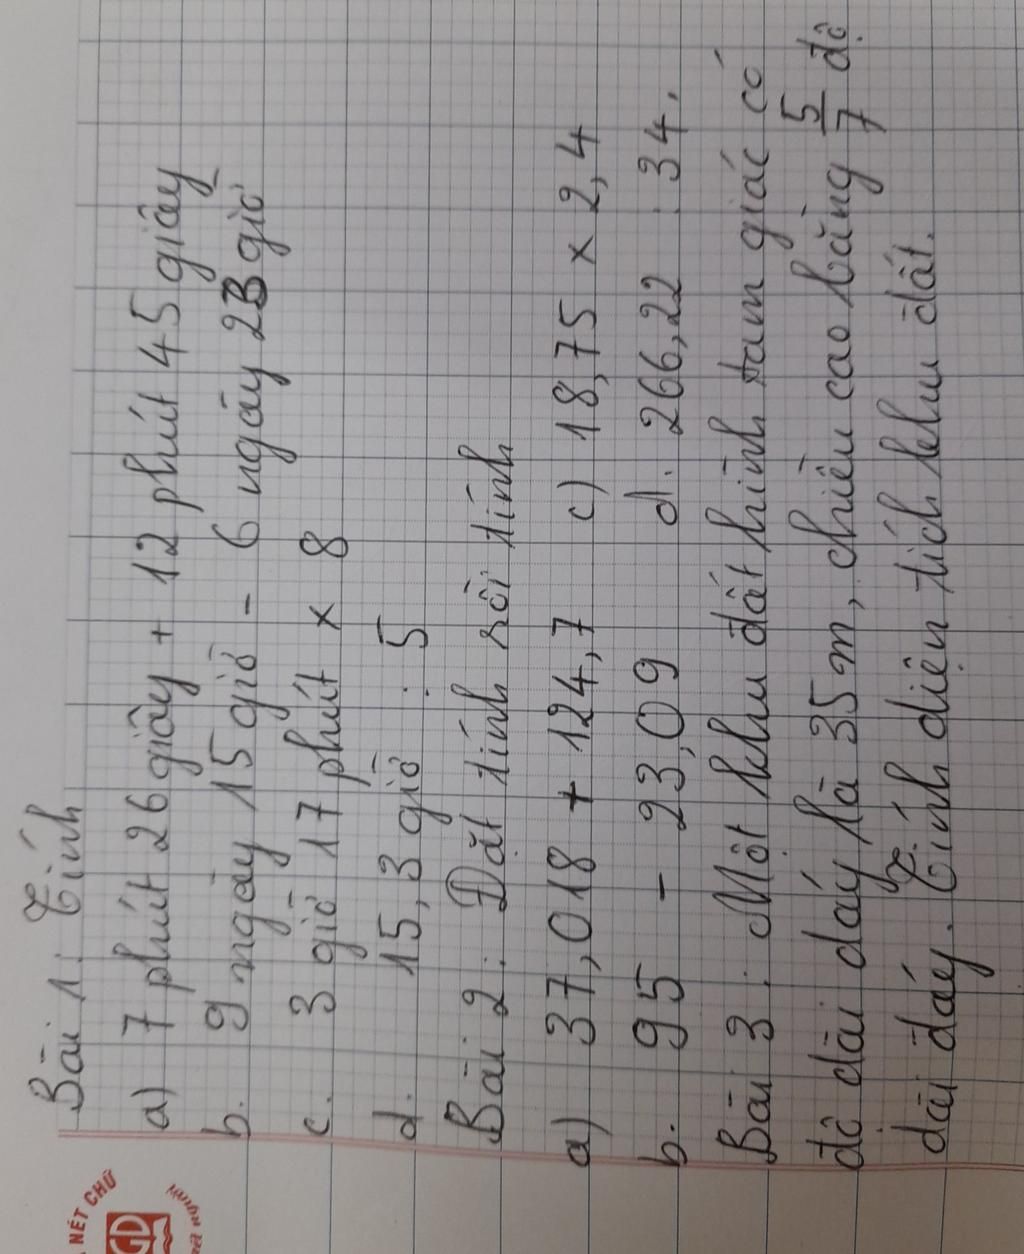 Bài 1: Tính
a) 7 phút 26 giây + 12 phút 45 giây
b. 9 ngày 15 giờ - 6 ngày 23 giờ
c. 3 giờ 17 phút x 8
d. 15,3 giờ : 5
Bài 2: Đặt tính rồi tính
a) 37,018 + 124,7 c) 18,75 x 2,4
b. 95 - 23,09 d. 266,22 : 34.
Bài 3: Một khu đất hình tam giác có
độ dài đáy là 35m, chiều cao bằng 5/7 độ
dài đáy. Tính diện tích khu đất.
NÉT CHỮ
GD